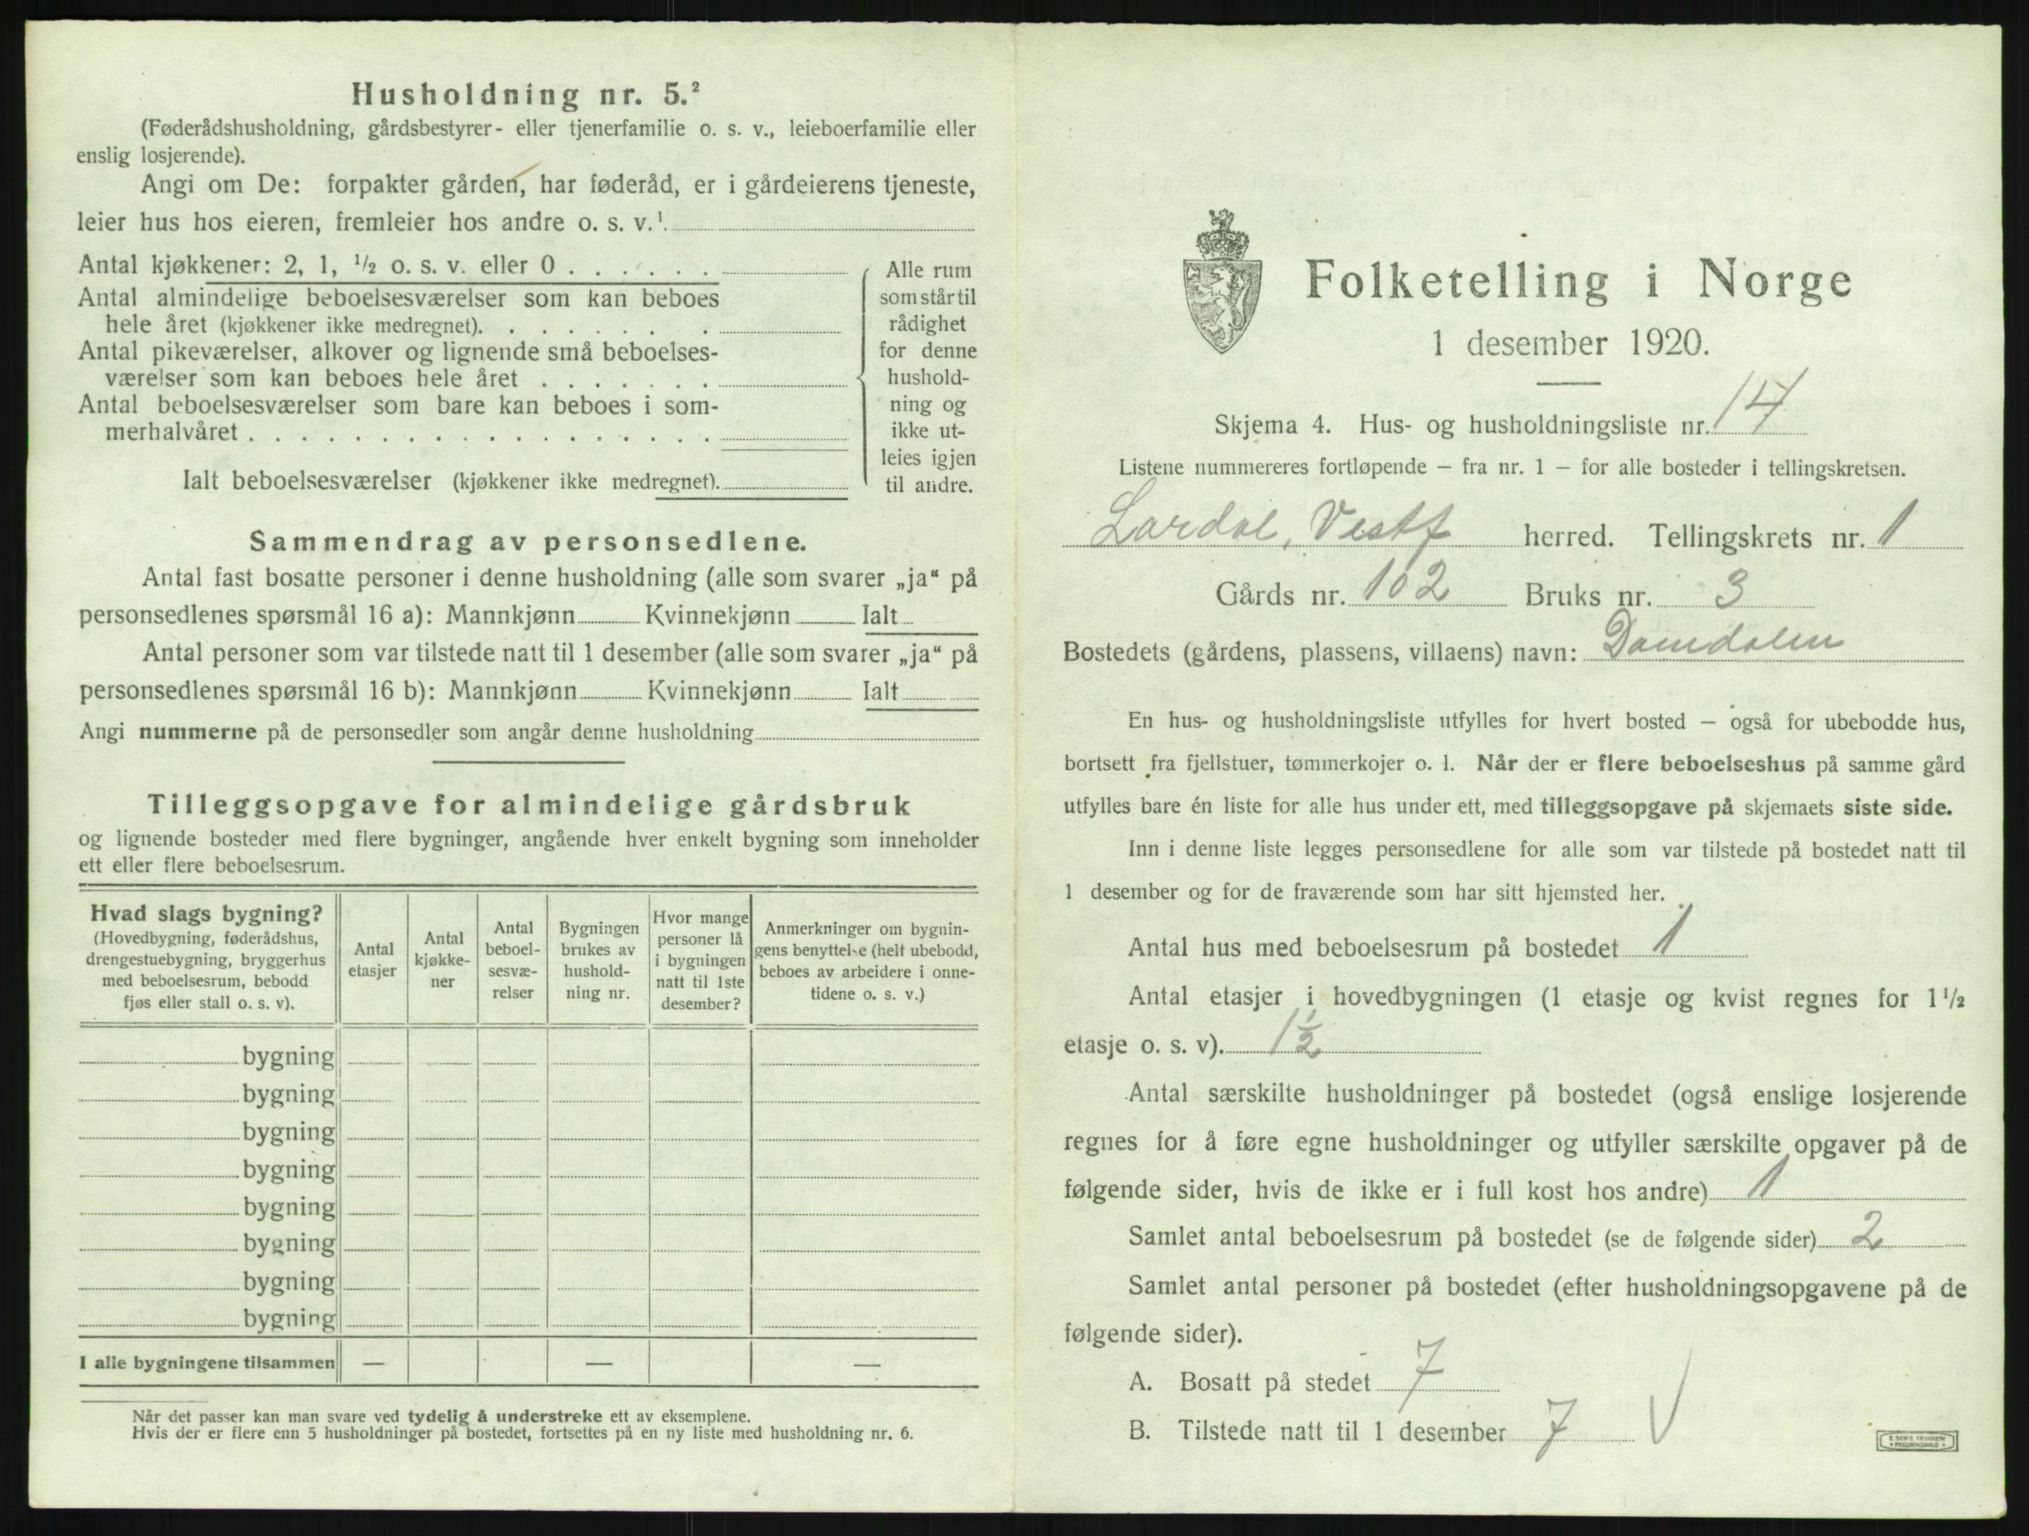 Husholdning nr. 5.²
(Føderådshusholdning, gårdsbestyrer- eller tjenerfamilie o. s. v., leieboerfamilie eller
enslig losjerende).
Angi om De: forpakter gården, har føderåd, er i gårdeierens tjeneste,
leier hus hos eieren, fremleier hos andre o. s. v.¹
Antal kjøkkener: 2, 1, ½ o. s. v. eller 0
Antal almindelige beboelsesværelser som kan beboes
hele året (kjøkkener ikke medregnet).
Antal pikeværelser, alkover og lignende små beboelses-
værelser som kan beboes hele året
Antal beboelsesværelser som bare kan beboes i som-
merhalvåret
Ialt beboelsesværelser (kjøkkener ikke medregnet).
Alle rum
som står til
rådighet
for denne
hushold-
ning og
ikke ut-
leies igjen
til andre.
Sammendrag av personsedlene.
Antal fast bosatte personer i denne husholdning (alle som svarer „ja“ på
personsedlenes spørsmål 16 a): Mannkjønn Kvinnekjønn Ialt
Antal personer som var tilstede natt til 1 desember (alle som svarer „ja“ på
personsedlenes spørsmål 16 b): Mannkjønn Kvinnekjønn Ialt
Angi nummerne på de personsedler som angår denne husholdning
Tilleggsopgave for almindelige gårdsbruk
og lignende bosteder med flere bygninger, angående hver enkelt bygning som inneholder
ett eller flere beboelsesrum.
Hvad slags bygning?
(Hovedbygning, føderådshus,
drengestuebygning, bryggerhus
med beboelsesrum, bebodd
fjøs eller stall o. s. v).
Antal
etasjer
Antal
kjøkke-
ner
Antal
beboel-
sesvæ-
relser
Bygningen
brukes av
hushold-
ning nr.
Hvor mange
personer lå
i bygningen
natt til 1ste
desember?
Anmerkninger om bygnin-
gens benyttelse (helt ubebodd,
beboes av arbeidere i onne-
tidene o. s. v.)
bygning
bygning
bygning
bygning
bygning
bygning
bygning
bygning
I alle bygningene tilsammen — — —
Når det passer kan man svare ved tydelig å understreke ett av eksemplene.
Hvis der er flere enn 5 husholdninger på bostedet, fortsettes på en ny liste med husholdning nr. 6.
Folketelling i Norge
1 desember 1920.
Skjema 4. Hus- og husholdningsliste nr. 14
Listene nummereres fortløpende — fra nr. 1 — for alle bosteder i tellingskretsen.
Lardal, Vestf herred. Tellingskrets nr. 1
Gårds nr. 102 Bruks nr. 3
Bostedets (gårdens, plassens, villaens) navn: Damdalen
En hus- og husholdningsliste utfylles for hvert bosted — også for ubebodde hus,
bortsett fra fjellstuer, tømmerkojer o. l. Når der er flere beboelseshus på samme gård
utfylles bare én liste for alle hus under ett, med tilleggsopgave på skjemaets siste side.
Inn i denne liste legges personsedlene for alle som var tilstede på bostedet natt til
1 desember og for de fraværende som har sitt hjemsted her.
Antal hus med beboelsesrum på bostedet 1
Antal etasjer i hovedbygningen (1 etasje og kvist regnes for 1½
etasje o. s. v). 1½
Antal særskilte husholdninger på bostedet (også enslige losjerende
regnes for å føre egne husholdninger og utfyller særskilte opgaver på de
følgende sider, hvis de ikke er i full kost hos andre) 1
Samlet antal beboelsesrum på bostedet (se de følgende sider) 2
Samlet antal personer på bostedet (efter husholdningsopgavene på de
følgende sider).
A. Bosatt på stedet 7
B. Tilstede natt til 1 desember 7 V